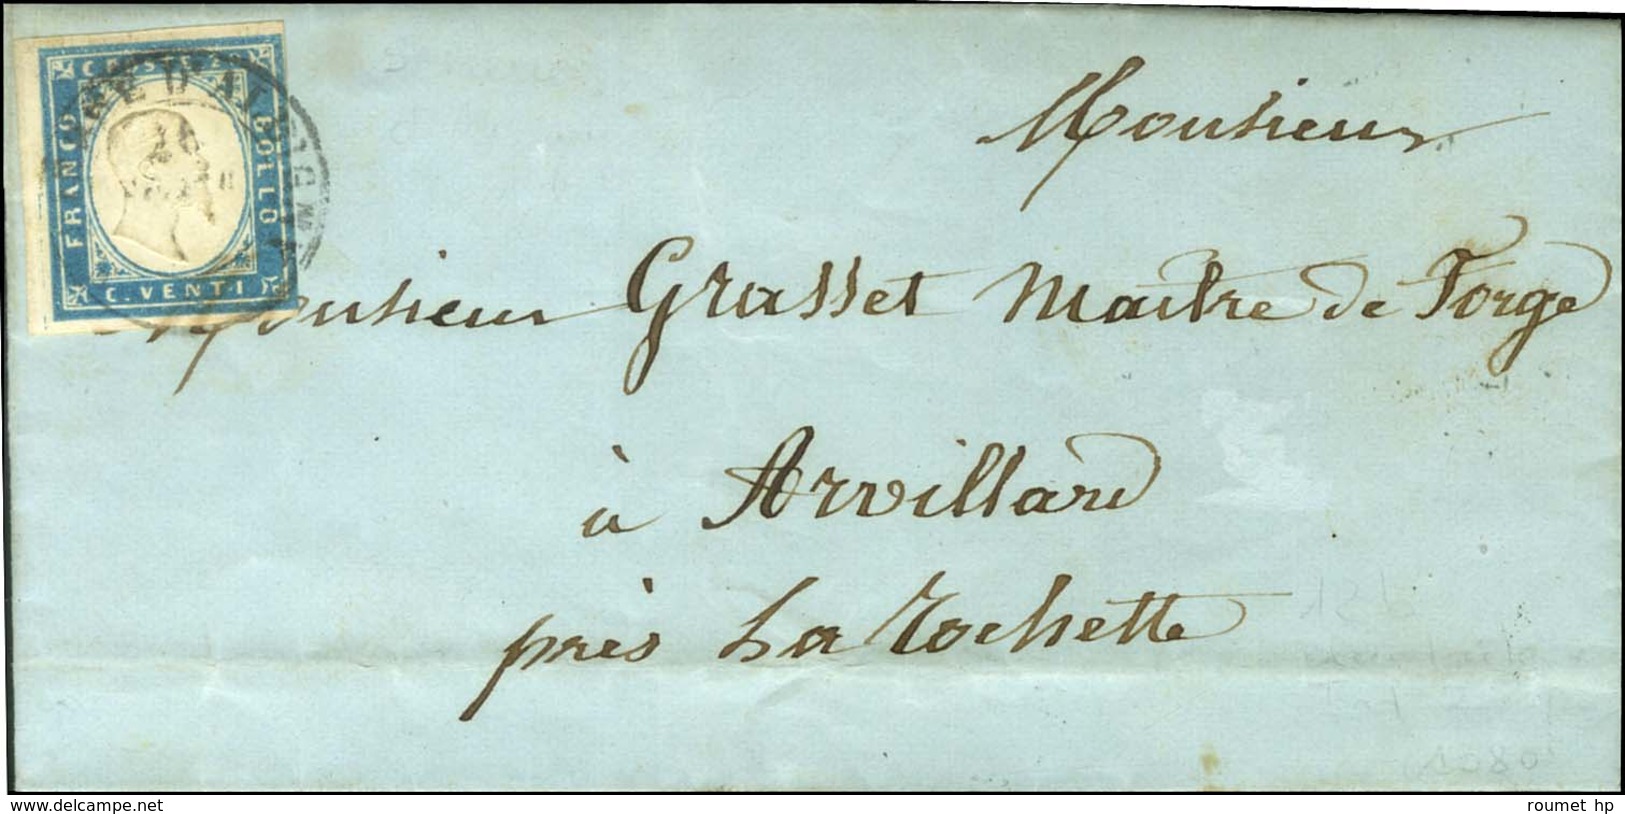 FRANCO
BOLLO
C. VENTI
Monsieur
Monsieur Grasset Maitre de Forge
à Arvillard
près La Rochette
www.delcampe.net
roumet hp